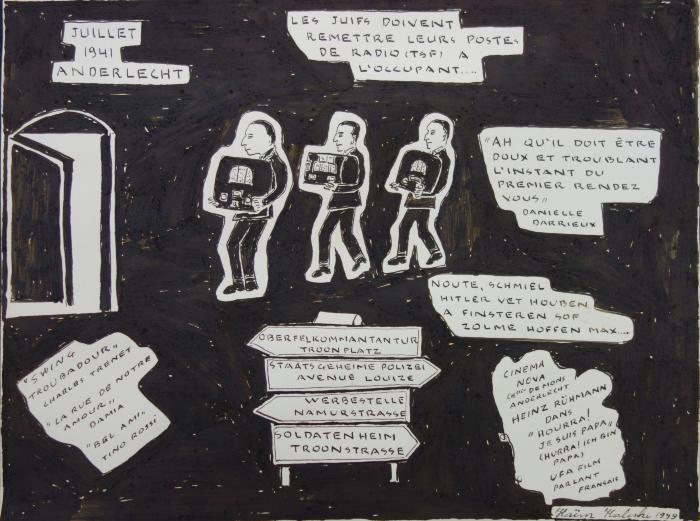 JUILLET
1941
ANDERLECHT
LES JUIFS DOIVENT
REMETTRE LEURS POSTES
DE RADIO (TSF) A
L'OCCUPANT....
"AH QU'IL DOIT ÊTRE
DOUX ET TROUBLANT
L'INSTANT DU
PREMIER RENDEZ
VOUS"
DANIELLE
DARRIEUX
NOUTE, SCHMIEL
HITLER VET HOUBEN
A FINSTEREN SOF
ZOLME HOFFEN MAX....
OBERFELKOMMANTANTUR
TROONPLATZ
STAATSGEHEIME POLIZEI
AVENUE LOUIZE
WERBESTELLE
NAMURSTRASSE
SOLDATENHEIM
TROONSTRASSE
"SWING
TROUBADOUR"
CHARLES TRENET
"LA RUE DE NOTRE
AMOUR"
DAMIA
"BEL AMI"
TINO ROSSI
CINEMA
NOVA
DEMONS
ANDERLECHT
HEINZ RÜHMANN
DANS
"HOURRA!
JE SUIS PAPA"
(HURRA! ICH BIN
PAPA)
UFA FILM
PARLANT
FRANÇAIS